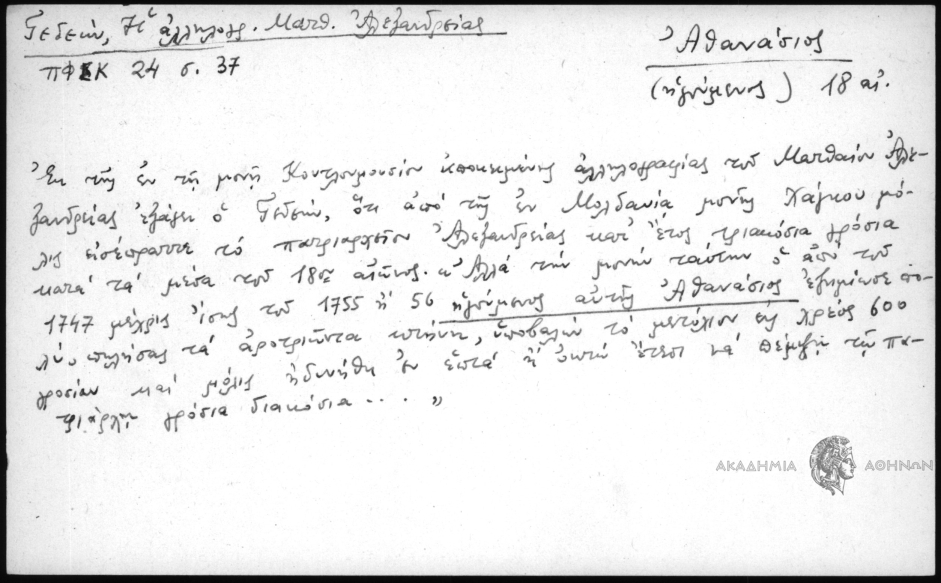 Γεδεών, Ἡ ἀλληλογρ. Ματθ. Ἀλεξανδρείας
ΠΦΣΚ 24 σ. 37
Ἀθανάσιος
(ἡγούμενος) 18 αἰ.
Ἐκ τῆς ἐν τῇ μονῇ Κουτλουμουσίου ἀποκειμένης ἀλληλογραφίας τοῦ Ματθαίου Ἀλε-
ξανδρείας ἐξάγει ὁ Γεδεών, ὅτι ἀπό τῆς ἐν Μολδαυίᾳ μονῆς Χάγκου μό-
λις εἰσέπραττε τό πατριαρχεῖον Ἀλεξανδρείας κατ' ἔτος τριακόσια γρόσια
κατά τά μέσα τοῦ 18ου αἰῶνος. «Ἀλλά τήν μονήν ταύτην ὁ ἀπό τοῦ
1747 μέχρις ἴσως τοῦ 1755 ἤ 56 ἡγούμενος αὐτῆς Ἀθανάσιος ἐζημίωσε πο-
λύ, πωλήσας τά ἀροτριῶντα κτήνη, ὑποβαλών τό μετόχιον εἰς χρέος 600
γροσίων καί μόλις ἠδυνήθη ἐν ἑπτά ἤ ὀκτώ ἔτεσι νά τῷ πα-
τριάρχῃ γρόσια διακόσια ... »
ΑΚΑΔΗΜΙΑ ΑΘΗΝΩΝ